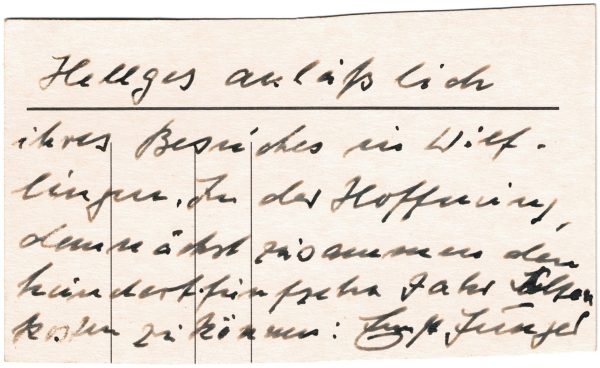 Hellges anläßlich
ihres Besuches in Wilf-
lingen. In der Hoffnung,
demnächst zusammen den
hundertfünfzehn Jahr
kosten zu können: Ernst Jünger